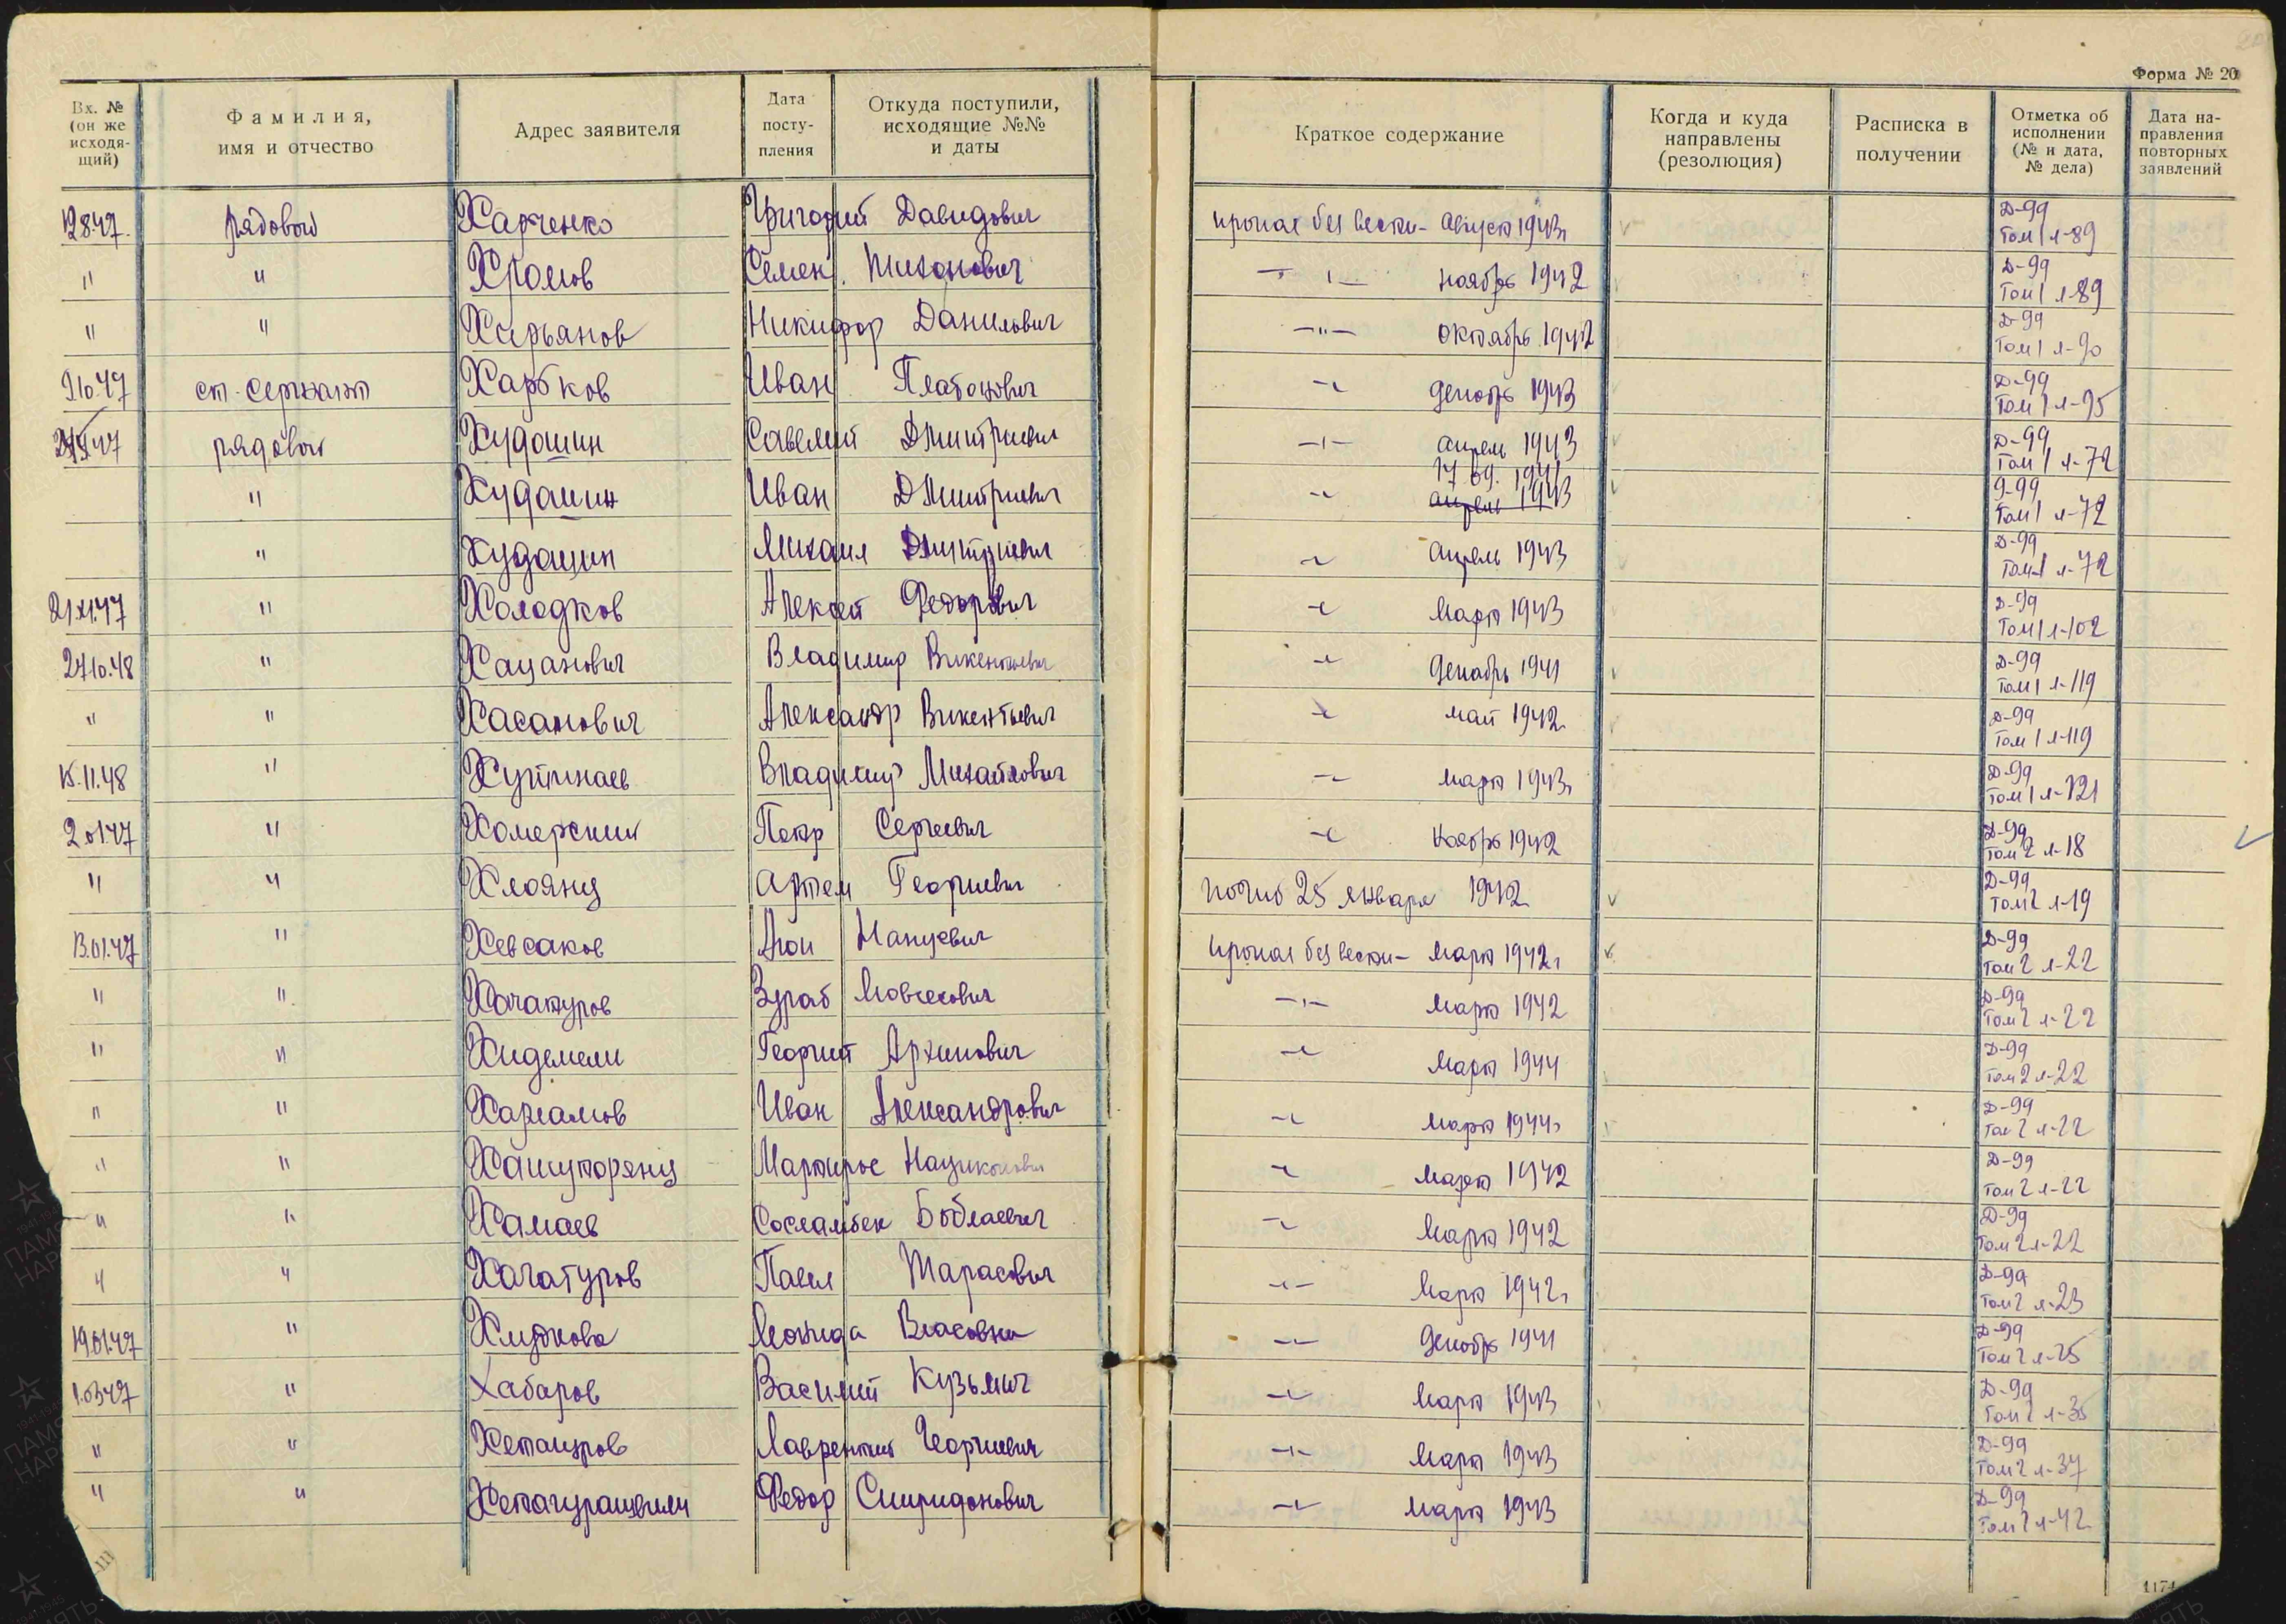 Форма № 20
Вх. № (он же исходя-щий) Фамилия, имя и отчество Адрес заявителя Дата посту-пления Откуда поступили, исходящие №№ и даты Краткое содержание Когда и куда направлены (резолюция) Расписка в получении Отметка об исполнении (№ и дата, № дела) Дата на-правления повторных заявлений
12.8.47. рядовой Харченко Григорий Давидович пропал без вести - август 1943г Д-99 Том 1 л-89
" " Хромов Семен Тихонович -"- ноябрь 1942 Д-99 Том 1 л-89
" " Харьянов Никифор Данилович -"- октябрь 1942 Д-99 Том 1 л-90
9.10.47 ст. сержант Харьков Иван Платонович -"- декабрь 1943 Д-99 Том 1 л-95
47 рядовой Худошин Савелий Дмитриевич -"- апрель 1943 Д-99 Том 1 л-72
" Худошин Иван Дмитриевич -"- 17.09.1941 апрель 1943 Д-99 Том 1 л-72
" Худошин Михаил Дмитриевич -"- апрель 1943 Д-99 Том 1 л-72
21.XI.47 " Холодков Алексей Федорович -"- март 1943 Д-99 Том 1 л-102
27.10.48 " Хацанович Владимир Викентьевич -"- декабрь 1941 Д-99 Том 1 л-119
" " Хасанович Александр Викентьевич -"- май 1942 Д-99 Том 1 л-119
15.11.48 " Хутинаев Владимир Михайлович -"- март 1943г Д-99 Том 1 л-121
2.01.47 " Хомерский Петр Сергеевич -"- ноябрь 1942 Д-99 Том 2 л-18
" " Хлоянц Артем Георгиевич погиб 25 января 1942 Д-99 Том 2 л-19
13.01.47 " Хевсаков Нануевич пропал без вести - март 1942г Д-99 Том 2 л-22
" " Хачатуров Зураб Мовсесович -"- март 1942 Д-99 Том 2 л-22
" " Хидемели Георгий Архипович -"- март 1944 Д-99 Том 2 л-22
" " Харламов Иван Александрович -"- март 1944г Д-99 Том 2 л-22
" " Хашуторянц Мартирос -"- март 1942 Д-99 Том 2 л-22
" " Хамаев Сосламбек -"- март 1942 Д-99 Том 2 л-22
" " Хачатуров Павел Тарасович -"- март 1942г Д-99 Том 2 л-23
19.01.47 " Хлудкова Леонида Власовна -"- декабрь 1941 Д-99 Том 2 л-25
1.03.47 " Хабаров Василий Кузьмич -"- март 1943 Д-99 Том 2 л-35
" " Хетагуров Лаврентий Георгиевич -"- март 1943 Д-99 Том 2 л-37
" " Хетагурашвили Федор Спиридонович -"- март 1943 Д-99 Том 2 л-42